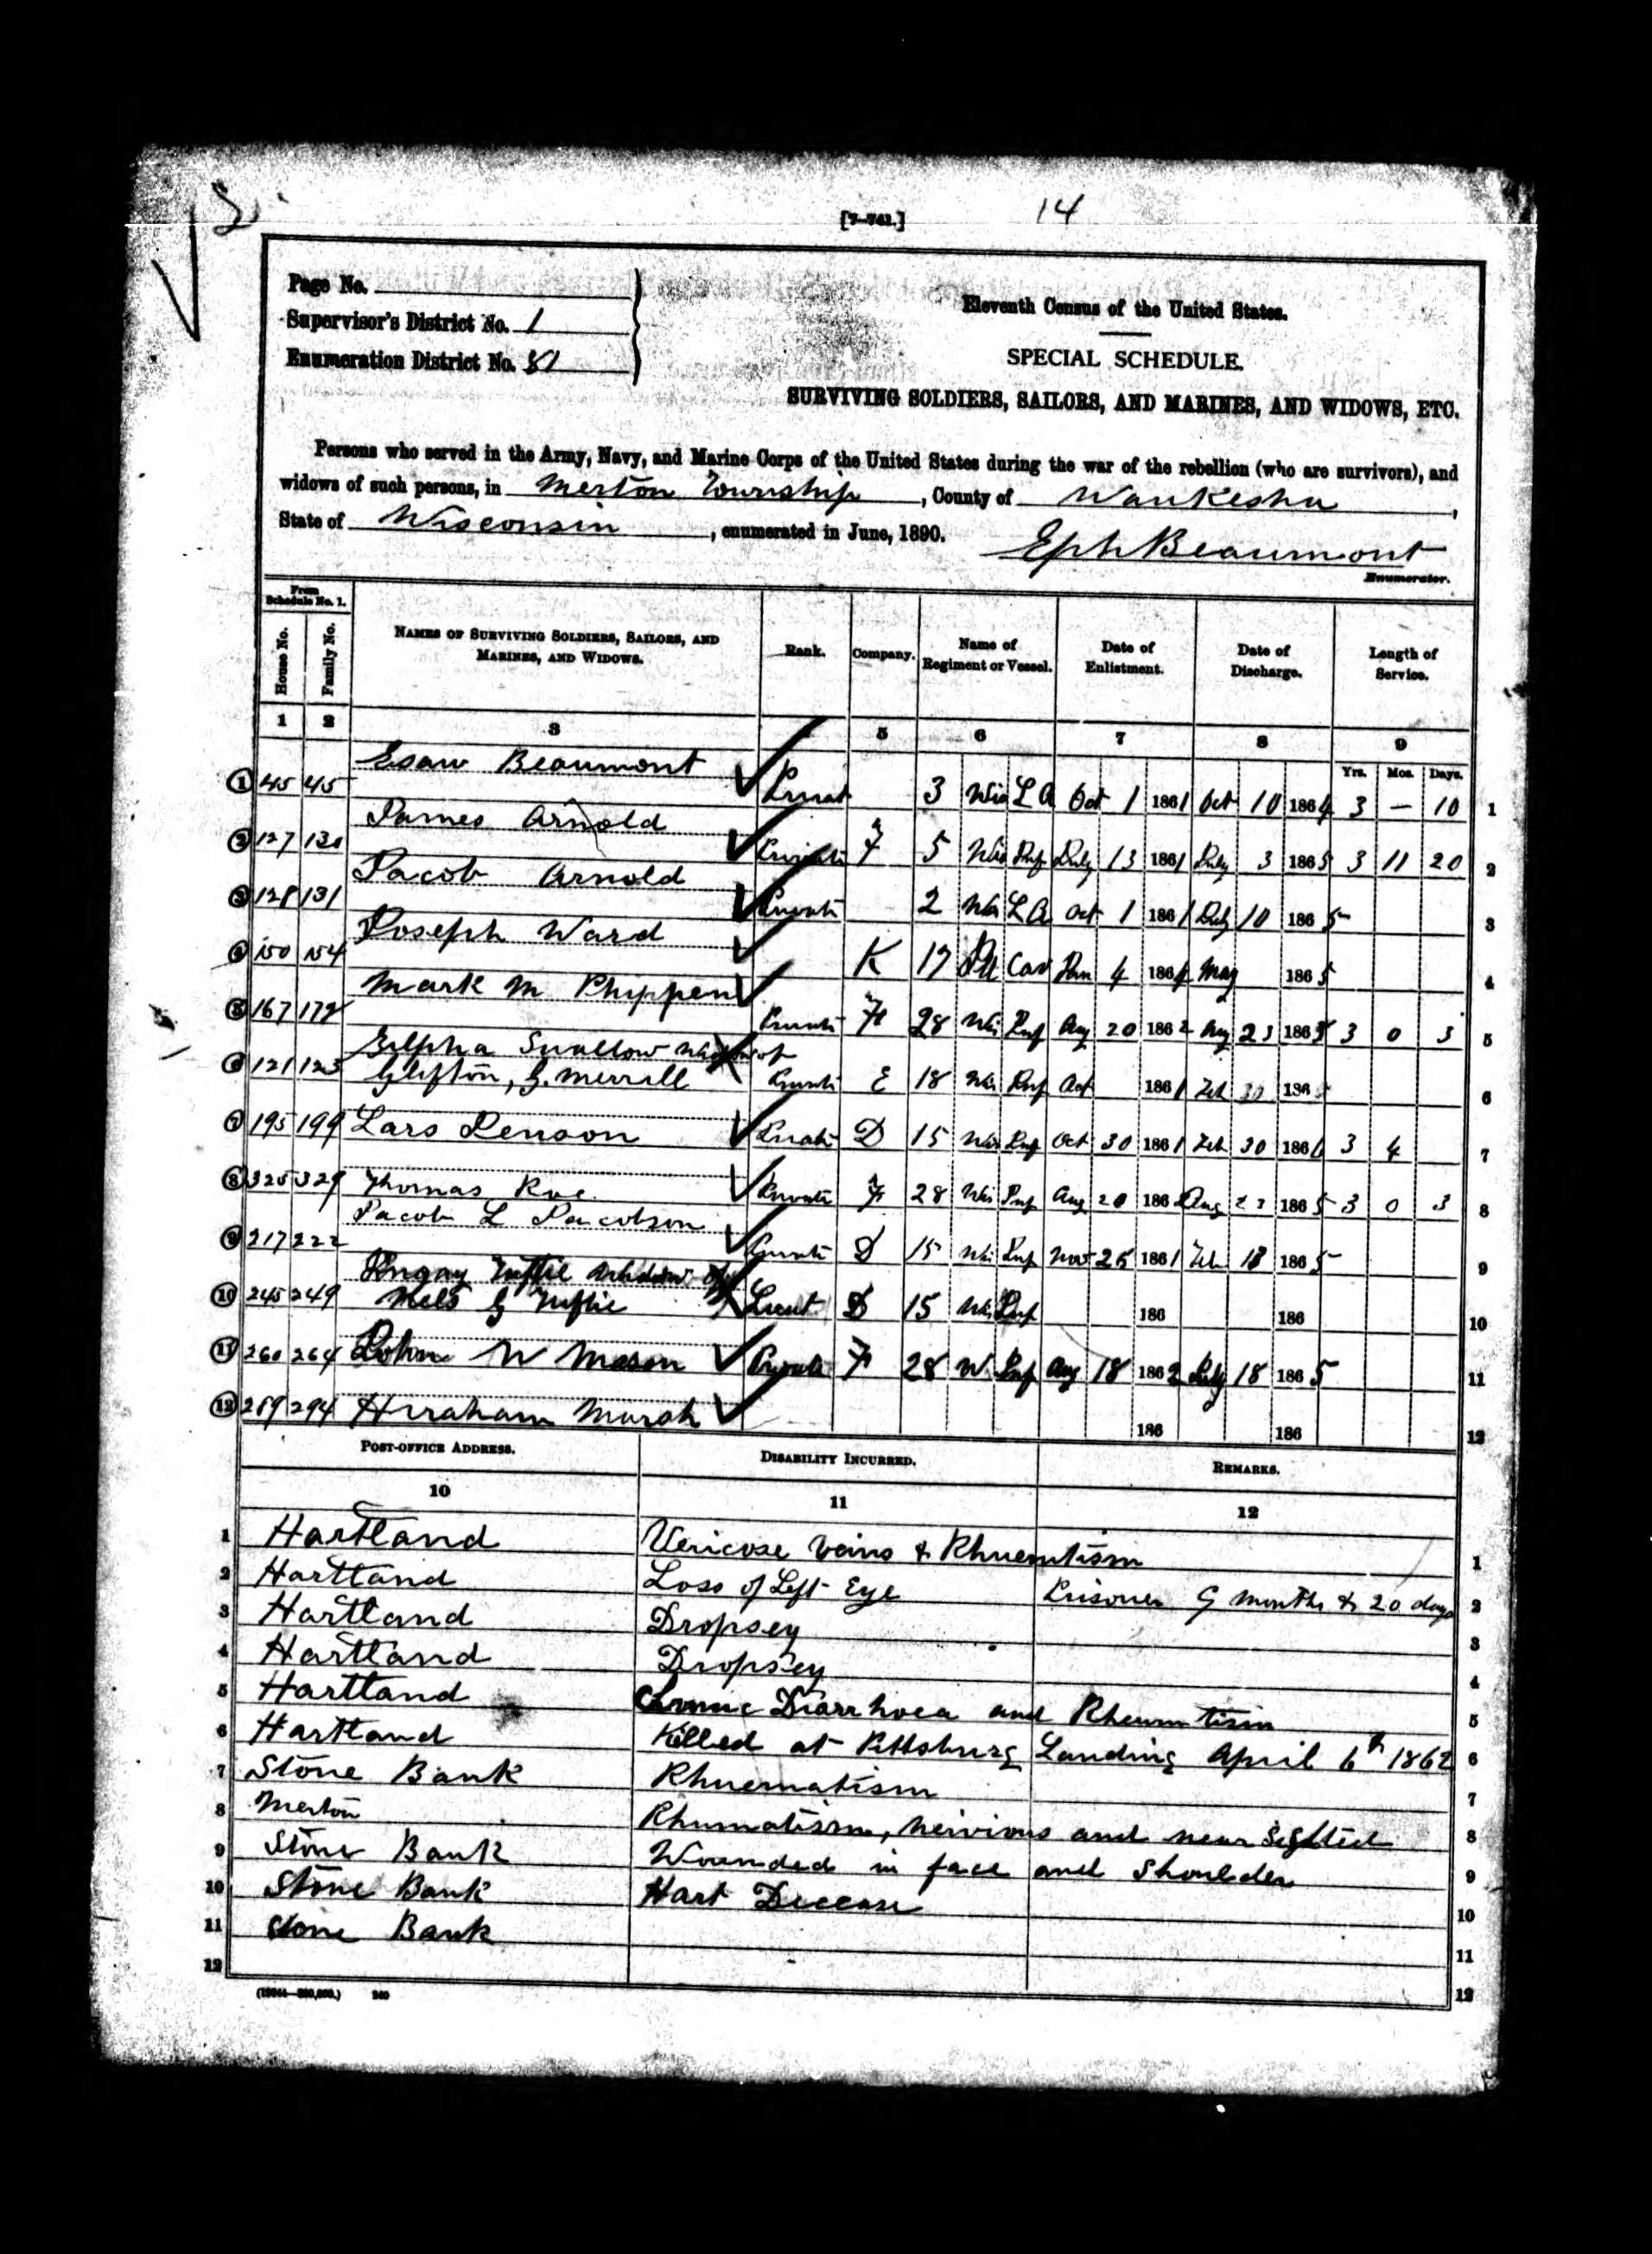 [7-761.] 14
Page No.
Supervisor's District No. 1
Enumeration District No. 81
Eleventh Census of the United States.
SPECIAL SCHEDULE.
SURVIVING SOLDIERS, SAILORS, AND MARINES, AND WIDOWS, ETC.
Persons who served in the Army, Navy, and Marine Corps of the United States during the war of the rebellion (who are survivors), and
widows of such persons, in Merton Township, County of Waukesha,
State of Wisconsin, enumerated in June, 1890. Eph Beaumont
Enumerator.
From Schedule No. 1.
House No. Family No. NAMES OF SURVIVING SOLDIERS, SAILORS, AND MARINES, AND WIDOWS. Rank. Company. Name of Regiment or Vessel. Date of Enlistment. Date of Discharge. Length of Service.
1 2 3 5 6 7 8 9
Yrs. Mos. Days.
Esaw Beaumont
1 45 45 Privat 3 Wis L A Oct 1 1861 Oct 10 1864 3 — 10 1
James Arnold
2 127 130 Private F 5 Wis Inf July 13 1861 July 3 1865 3 11 20 2
Jacob Arnold
3 128 131 Private 2 Wis L A Oct 1 1861 July 10 1865 3
Joseph Ward
4 150 154 K 17 Ill Cav Jan 4 1864 May 1865 4
Mark M Phippen
5 167 172 Private F 28 Wis Inf Aug 20 1862 Aug 23 1865 3 0 3 5
Zilpha Swallow widow of
6 121 123 Clifton, G. Merrill Private E 18 Wis Inf Oct 1861 Feb 30 186 6
7 195 199 Lars Penson Private D 15 Wis Inf Oct 30 1861 Feb 30 186 3 4 7
8 325 329 Thomas Roe Private F 28 Wis Inf Aug 20 1862 Aug 23 1865 3 0 3 8
Jacob L Jacobson
9 217 222 Private D 15 Wis Inf Nov 25 1861 Feb 18 1865 9
Tuftie widow of
10 245 249 Nels G Tuftie Lieut D 15 Wis Inf 186 186 10
11 260 264 John W Mason Private F 28 W Inf Aug 18 1862 July 18 1865 11
12 289 294 Hiraham Marsh 186 186 12
POST-OFFICE ADDRESS. DISABILITY INCURRED. REMARKS.
10 11 12
1 Hartland Vericose veins & Rhuemtism 1
2 Hartland Loss of Left Eye Prisoner 9 months & 20 days 2
3 Hartland Dropsey 3
4 Hartland Dropsey 4
5 Hartland Chronic Diarrhoea and Rheumtism 5
6 Hartland Killed at Pittsburg Landing April 6th 1862 6
7 Stone Bank Rhuematism 7
8 Merton Rhumatism, neivious and near sighted 8
9 Stone Bank Wounded in face and shoulder 9
10 Stone Bank Hart Decease 10
11 Stone Bank 11
12 12